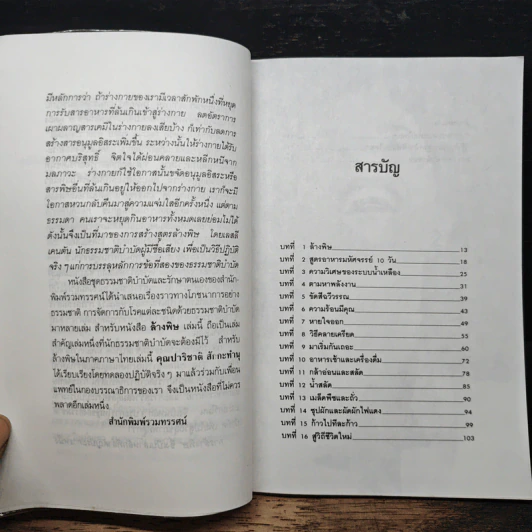 มีหลักการว่า ถ้าร่างกายของเรามีเวลาสักพักหนึ่งที่หยุด
การรับสารอาหารที่ล้นเกินเข้าสู่ร่างกาย ลดอัตราการ
เผาผลาญสารเคมีในร่างกายลงเสียบ้าง ก็เท่ากับลดการ
สร้างสารอนุมูลอิสระเพิ่มขึ้น ระหว่างนั้นให้ร่างกายได้รับ
อากาศบริสุทธิ์ จิตใจได้ผ่อนคลายและหลีกหนีจาก
มลภาวะ ร่างกายก็ใช้โอกาสนั้นขจัดอนุมูลอิสระหรือ
สารพิษอื่นที่ล้นเกินอยู่ให้ออกไปจากร่างกาย เราก็จะมี
โอกาสหวนกลับคืนมาสู่ความแจ่มใสอีกครั้งหนึ่ง แต่ตาม
ธรรมดา คนเราจะหยุดกินอาหารทั้งหมดเลยย่อมไม่ได้
ดังนั้นจึงเป็นที่มาของการสร้างสูตรล้างพิษ โดยเลสลี
เคนตัน นักธรรมชาติบำบัดผู้มีชื่อเสียง เพื่อเป็นวิธีปฏิบัติ
จริง ๆ แก่การบรรลุหลักการข้อที่สองของธรรมชาติบำบัด
หนังสือชุดธรรมชาติบำบัดและรักษาตนเองของสำนัก
พิมพ์รวมทรรศน์ได้นำเสนอเรื่องราวทางโภชนาการอย่าง
ธรรมชาติ การจัดการกับโรคแต่ละชนิดด้วยธรรมชาติบำบัด
มาหลายเล่ม สำหรับหนังสือ ล้างพิษ เล่มนี้ ถือเป็นเล่ม
สำคัญเล่มหนึ่งที่นักธรรมชาติบำบัดจะต้องมีไว้ สำหรับ
ล้างพิษในภาคภาษาไทยเล่มนี้ คุณปาริชาติ
ได้เรียบเรียงโดยทดลองปฏิบัติจริง ๆ มาแล้วร่วมกับเพื่อน
แพทย์ในกองบรรณาธิการของเรา จึงเป็นหนังสือที่ไม่ควร
พลาดอีกเล่มหนึ่ง
สำนักพิมพ์รวมทรรศน์
สารบัญ
บทที่ 1 ล้างพิษ 13
บทที่ 2 สูตรอาหารมหัศจรรย์ 10 วัน 18
บทที่ 3 ความวิเศษของระบบน้ำเหลือง 25
บทที่ 4 ตามหาพลังงาน 31
บทที่ 5 ขัดสีฉวีวรรณ 39
บทที่ 6 ความร้อนมีคุณ 43
บทที่ 7 หายใจออก 49
บทที่ 8 วิธีคลายเครียด 55
บทที่ 9 มาเริ่มกันเถอะ 60
บทที่ 10 อาหารเช้าและเครื่องดื่ม 72
บทที่ 11 กล้าอ่อนและสลัด 78
บทที่ 12 น้ำสลัด 85
บทที่ 13 เมล็ดพืชและถั่ว 90
บทที่ 14 ซุปผักและผัดผักไฟแดง 94
บทที่ 15 ก้าวไปทีละก้าว 99
บทที่ 16 สู่วิถีชีวิตใหม่ 103